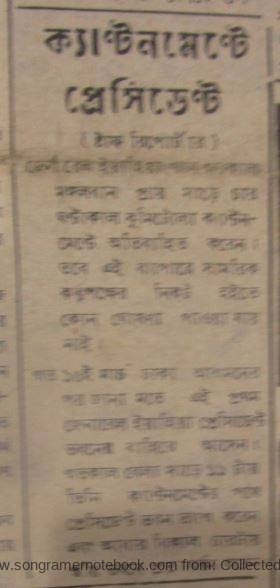 ক্যান্টনমেন্টে
প্রেসিডেন্ট
( ষ্টাফ রিপোর্টার )
মঙ্গলবার প্রায় সাড়ে চার
ঘন্টাকাল কুর্মিটোলা ক্যান্টন-
মেন্টে অতিবাহিত করেন।
তবে এই ব্যাপারে সামরিক
কর্তৃপক্ষের নিকট হইতে
কোন ঘোষণা পাওয়া যায়
নাই।
গত ১৫ই মার্চ ঢাকা আগমনের
পর জানা মতে এই প্রথম
জেনারেল ইয়াহিয়া প্রেসিডেন্ট
ভবনের বাহিরে আসেন।
গতকাল বেলা সাড়ে ১১ টায়
তিনি ক্যান্টনমেন্টের পথে
প্রেসিডেন্ট ভবন ত্যাগ করেন
এবং আবার বিকাল
w.songramernotebook.com from: Collected